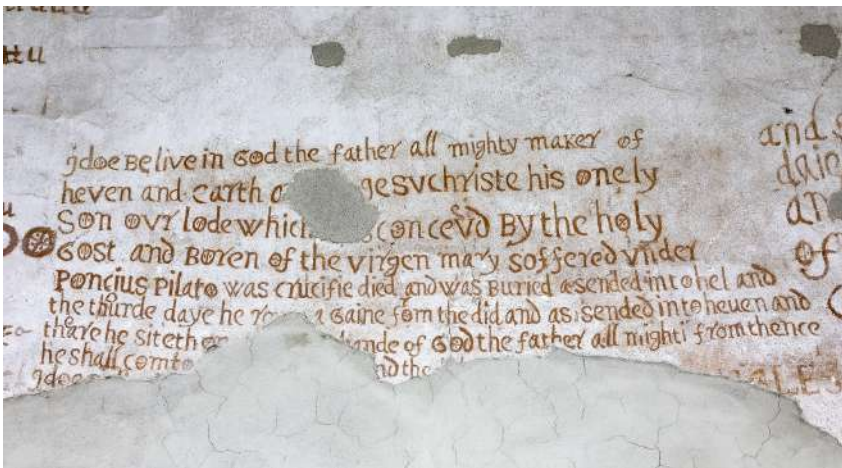 ttu
jdoe Belive in God the father all mighty maker of
heven and earth gesvchriste his onely
Son ovr lode which concevd By the holy
Gost and Boren of the virgen mary soffered vnder
Poncius Pilato was crucifie died and was Buried asended into hel and
the thurde daye he a Gaine fom the did and as:sended into heuen and
thare he siteth hande of God the father all mighti from thence
he shall comto nd the
jdoe
and
daie
an
of
ALES